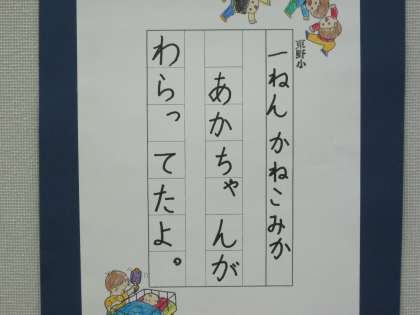 東野小
一ねん かねこみか
あかちゃんが
わらってたよ。